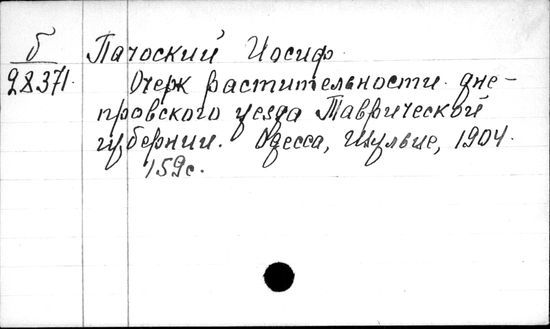 б Пачоский Иосиф
28371. Очерк растительности дне-
провского уезда Таврической
губернии. Одесса, Шульце, 1904.
159с.